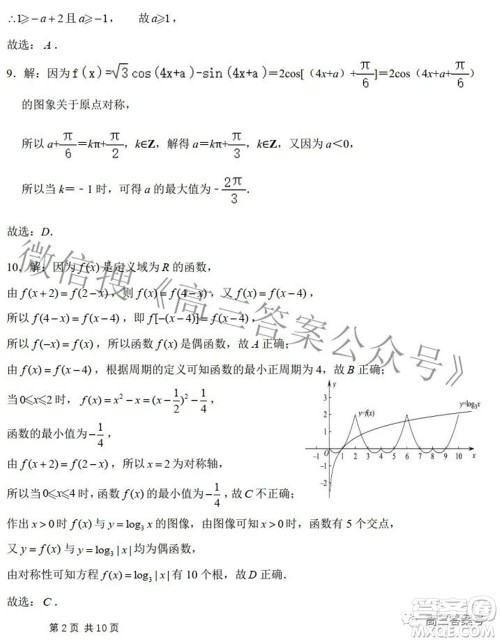 ∴1≥-a+2且a≥-1， 故a≥1，
故选：A．
9．解：因为f(x)=√3cos(4x+a)-sin(4x+a)＝2cos[（4x+a）+π/6]＝2cos（4x+a+π/6）
的图象关于原点对称，
所以 a+π/6＝kπ+π/2，k∈Z，解得 a＝kπ+π/3，k∈Z，又因为 a＜0，
所以当 k＝﹣1 时，可得 a 的最大值为-2π/3．
故选：D．
10．解：因为 f(x) 是定义域为 R 的函数，
由 f(x+2)=f(2-x)，则 f(x)=f(4-x)，又 f(x)=f(x-4)，
所以 f(4-x)=f(x-4)，即 f[-(x-4)]=f(x-4)，
所以 f(-x)=f(x)，所以函数 f(x) 是偶函数，故 A 正确；
由 f(x)=f(x-4)，根据周期的定义可知函数的最小正周期为 4，故 B 正确；
当 0≤x≤2 时， f(x)=x²-x=(x-1/2)²-1/4，
函数的最小值为-1/4，
由 f(x+2)=f(2-x)，所以 x=2 为对称轴，
所以当 0≤x≤4 时，函数 f(x) 的最小值为-1/4，故 C 不正确；
y
y=f(x)
y=log₃x
-1 0 1 2 3 4 5 6 7 8 9 10 x
作出 x>0 时 f(x) 与 y=log₃x 的图像，由图像可知 x>0 时，函数有 5 个交点，
又 y=f(x) 与 y=log₃|x| 均为偶函数，
由对称性可知方程 f(x)=log₃|x| 有 10 个根，故 D 正确．
故选：C．
第 2 页 共 10 页
微信搜《高三答案公众号》
高三答案号
答案圈
MXQE.COM